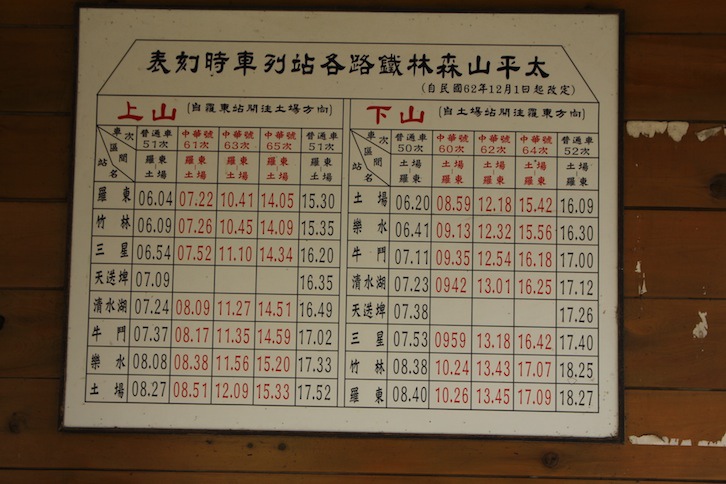 表刻時車列站各路鐵林森山平太
(自民國62年12月1日起改定)
上山 (自羅東站開往土場方向)
車次 區間 站名 普通車51次 中華號61次 中華號63次 中華號65次 普通車51次
羅東｜土場 羅東｜土場 羅東｜土場 羅東｜土場 羅東｜土場
羅東 06.04 07.22 10.41 14.05 15.30
竹林 06.09 07.26 10.45 14.09 15.35
三星 06.54 07.52 11.10 14.34 16.20
天送埤 07.09 16.35
清水湖 07.24 08.09 11.27 14.51 16.49
牛鬥 07.37 08.17 11.35 14.59 17.02
樂水 08.08 08.38 11.56 15.20 17.33
土場 08.27 08.51 12.09 15.33 17.52
下山 (自土場站開往羅東方向)
車次 區間 站名 普通車50次 中華號60次 中華號62次 中華號64次 普通車52次
土場｜羅東 土場｜羅東 土場｜羅東 土場｜羅東 土場｜羅東
土場 06.20 08.59 12.18 15.42 16.09
樂水 06.41 09.13 12.32 15.56 16.30
牛鬥 07.11 09.35 12.54 16.18 17.00
清水湖 07.23 0942 13.01 16.25 17.12
天送埤 07.38 17.26
三星 07.53 0959 13.18 16.42 17.40
竹林 08.38 10.24 13.43 17.07 18.25
羅東 08.40 10.26 13.45 17.09 18.27